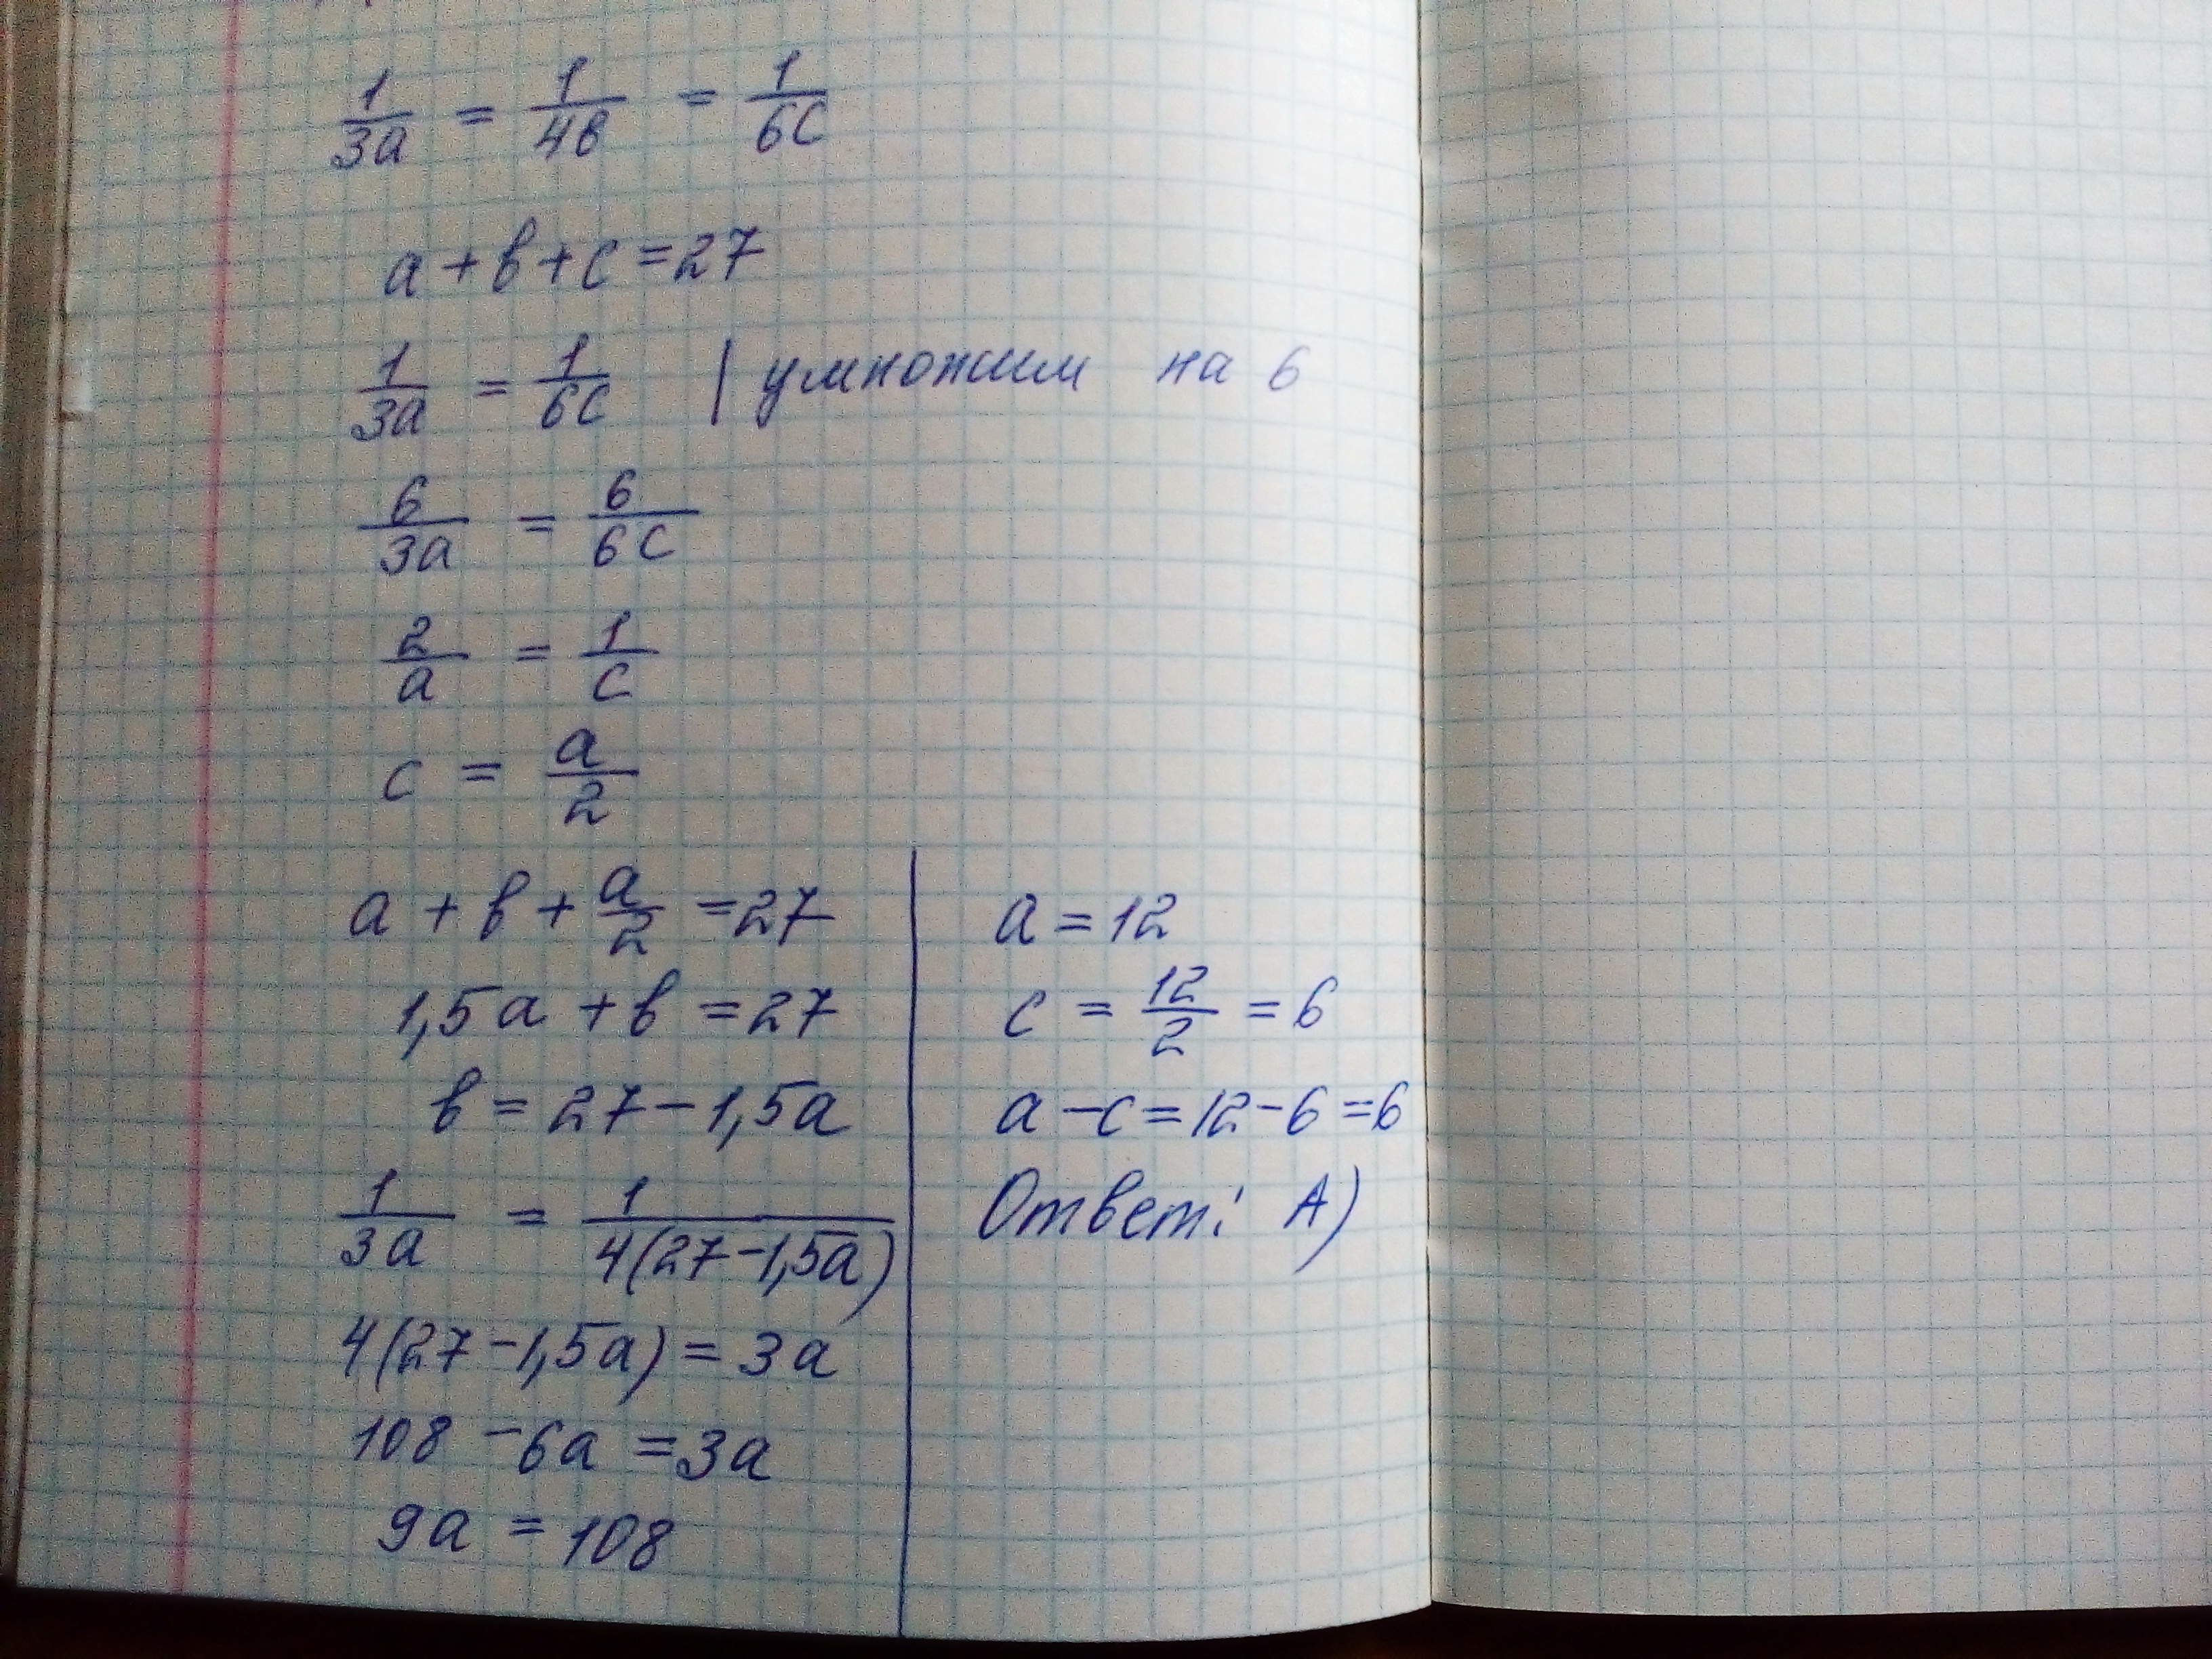 1/3a = 1/4в = 1/6c
a + в + c = 27
1/3a = 1/6c | умножим на 6
6/3a = 6/6c
2/a = 1/c
c = a/2
a + в + a/2 = 27
1,5a + в = 27
в = 27 - 1,5a
1/3a = 1/4(27-1,5a)
4(27-1,5a) = 3a
108 - 6a = 3a
9a = 108
a = 12
c = 12/2 = 6
a - c = 12 - 6 = 6
Ответ: А)